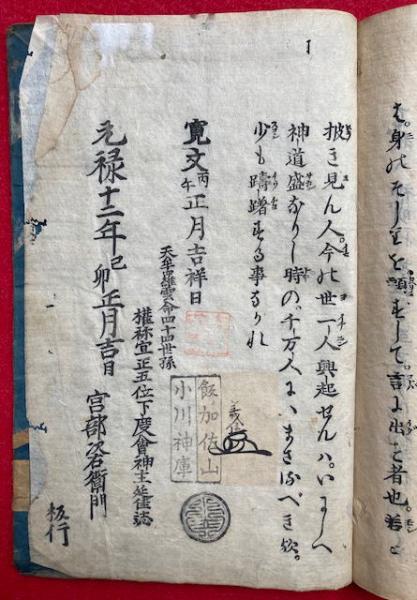 身の
を顧ずして。言に出す者也。
披き見ん人。今の世一人興起せんハ。いにしへ
神道盛なりし時の。千万人にハまさるべき歟。
少も躊躇する事なかれ
寛文丙午正月吉祥日
天牟羅雲命四十四世孫
權祢宜正五位下度會神主延佳誌
飯加佐山
小川神庫
元禄十二年己卯正月吉日 宮部次右衛門
板行